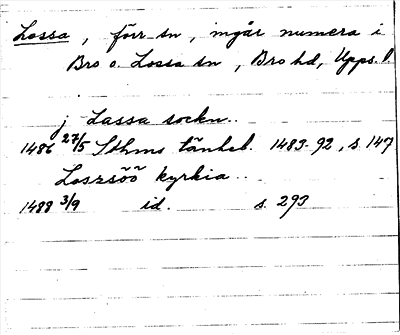 Lossa, förr sn, ingår numera i
Bro o. Lossa sn, Bro hd, Upps. l.
j Lassa sockn..
1486 27/5 Sthms tänkeb. 1483-92, s. 147
Loszsöö kyrkia..
1488 3/9 id. s. 293